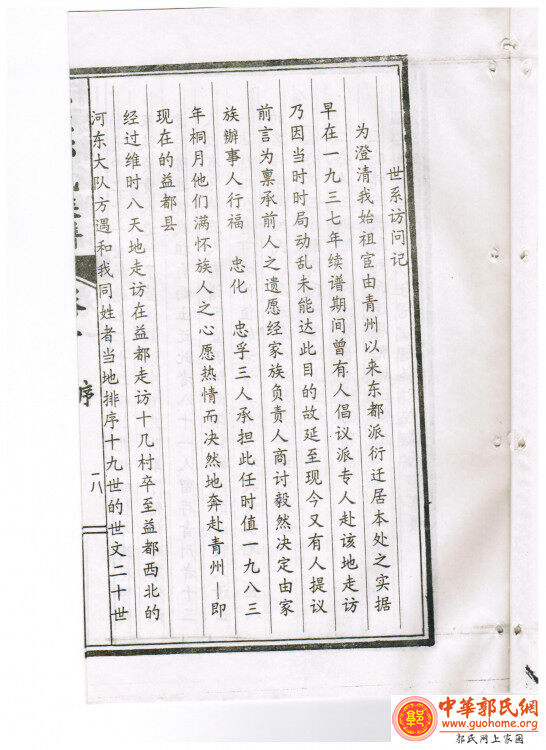 世系访问记
为澄清我始祖宦由青州以来东都派衍迁居本处之实据
早在一九三七年续谱期间曾有人倡议派专人赴该地走访
乃因当时时局动乱未能达此目的故延至现今又有人提议
前言为禀承前人之遗愿经家族负责人商讨毅然决定由家
族辦事人行福 忠化 忠孚三人承担此任时值一九八三
年桐月他们满怀族人之心愿热情而决然地奔赴青州—即
现在的益都县
经过维时八天地走访在益都走访十几村卒至益都西北的
河东大队方遇和我同姓者当地排序十九世的世文二十世
序
一八
中華郭氏網
www.guohome.org
郭氏网上家园